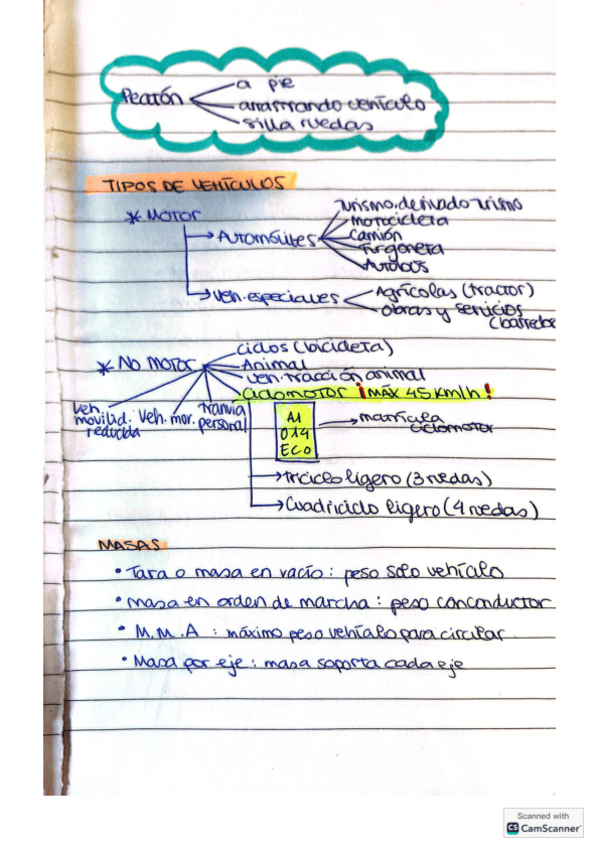 a pie
Peatón
arrastrando vehículo
silla ruedas
TIPOS DE VEHÍCULOS
* MOTOR
Turismo, derivado turismo
Motocicleta
Automóviles
Camión
Furgoneta
Autobús
Veh. especiales
Agrícolas (tractor)
Obras y servicios
(barredor
* NO MOTOR
ciclos (bicicleta)
Animal
Veh. tracción animal
Ciclomotor ¡MÁX 45 Km/h!
Veh.
movilid.
reducida
Veh. mov.
personal
tranvia
A1
014
ECO
matrícula
ciclomotor
Triciclo ligero (3 ruedas)
Cuadriciclo ligero (4 ruedas)
MASAS
• Tara o masa en vacío: peso solo vehículo
• Masa en orden de marcha: peso con conductor
• M.M.A: máximo peso vehículo para circular
• Masa por eje: masa soporta cada eje
Scanned with
CS CamScanner